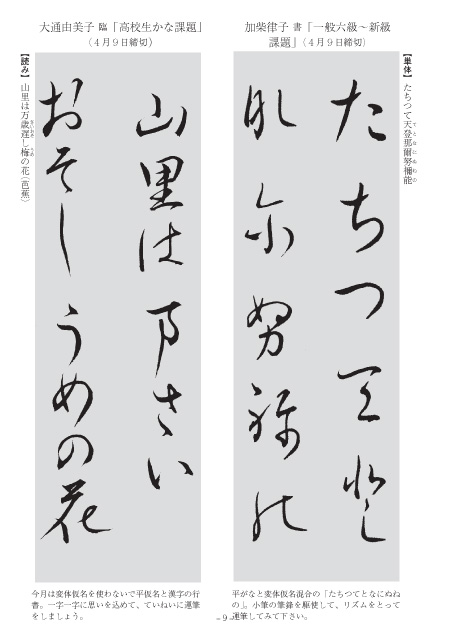 加柴律子 書「一般六級～新級
課題」（4月9日締切）
【単体】たちつて天登那爾努禰能
てとなにぬねの
たちつて
那爾努禰能
平がなと変体仮名混合の「たちつてとなにぬね
の」。小筆の筆鋒を駆使して、リズムをとって
運筆してみて下さい。
大通由美子 臨「高校生かな課題」
（4月9日締切）
山里は万さい
おそしうめの花
【読み】山里は万歳遅し梅の花（芭蕉）
今月は変体仮名を使わないで平仮名と漢字の行
書。一字一字に思いを込めて、ていねいに運筆
をしましょう。
- 9 -